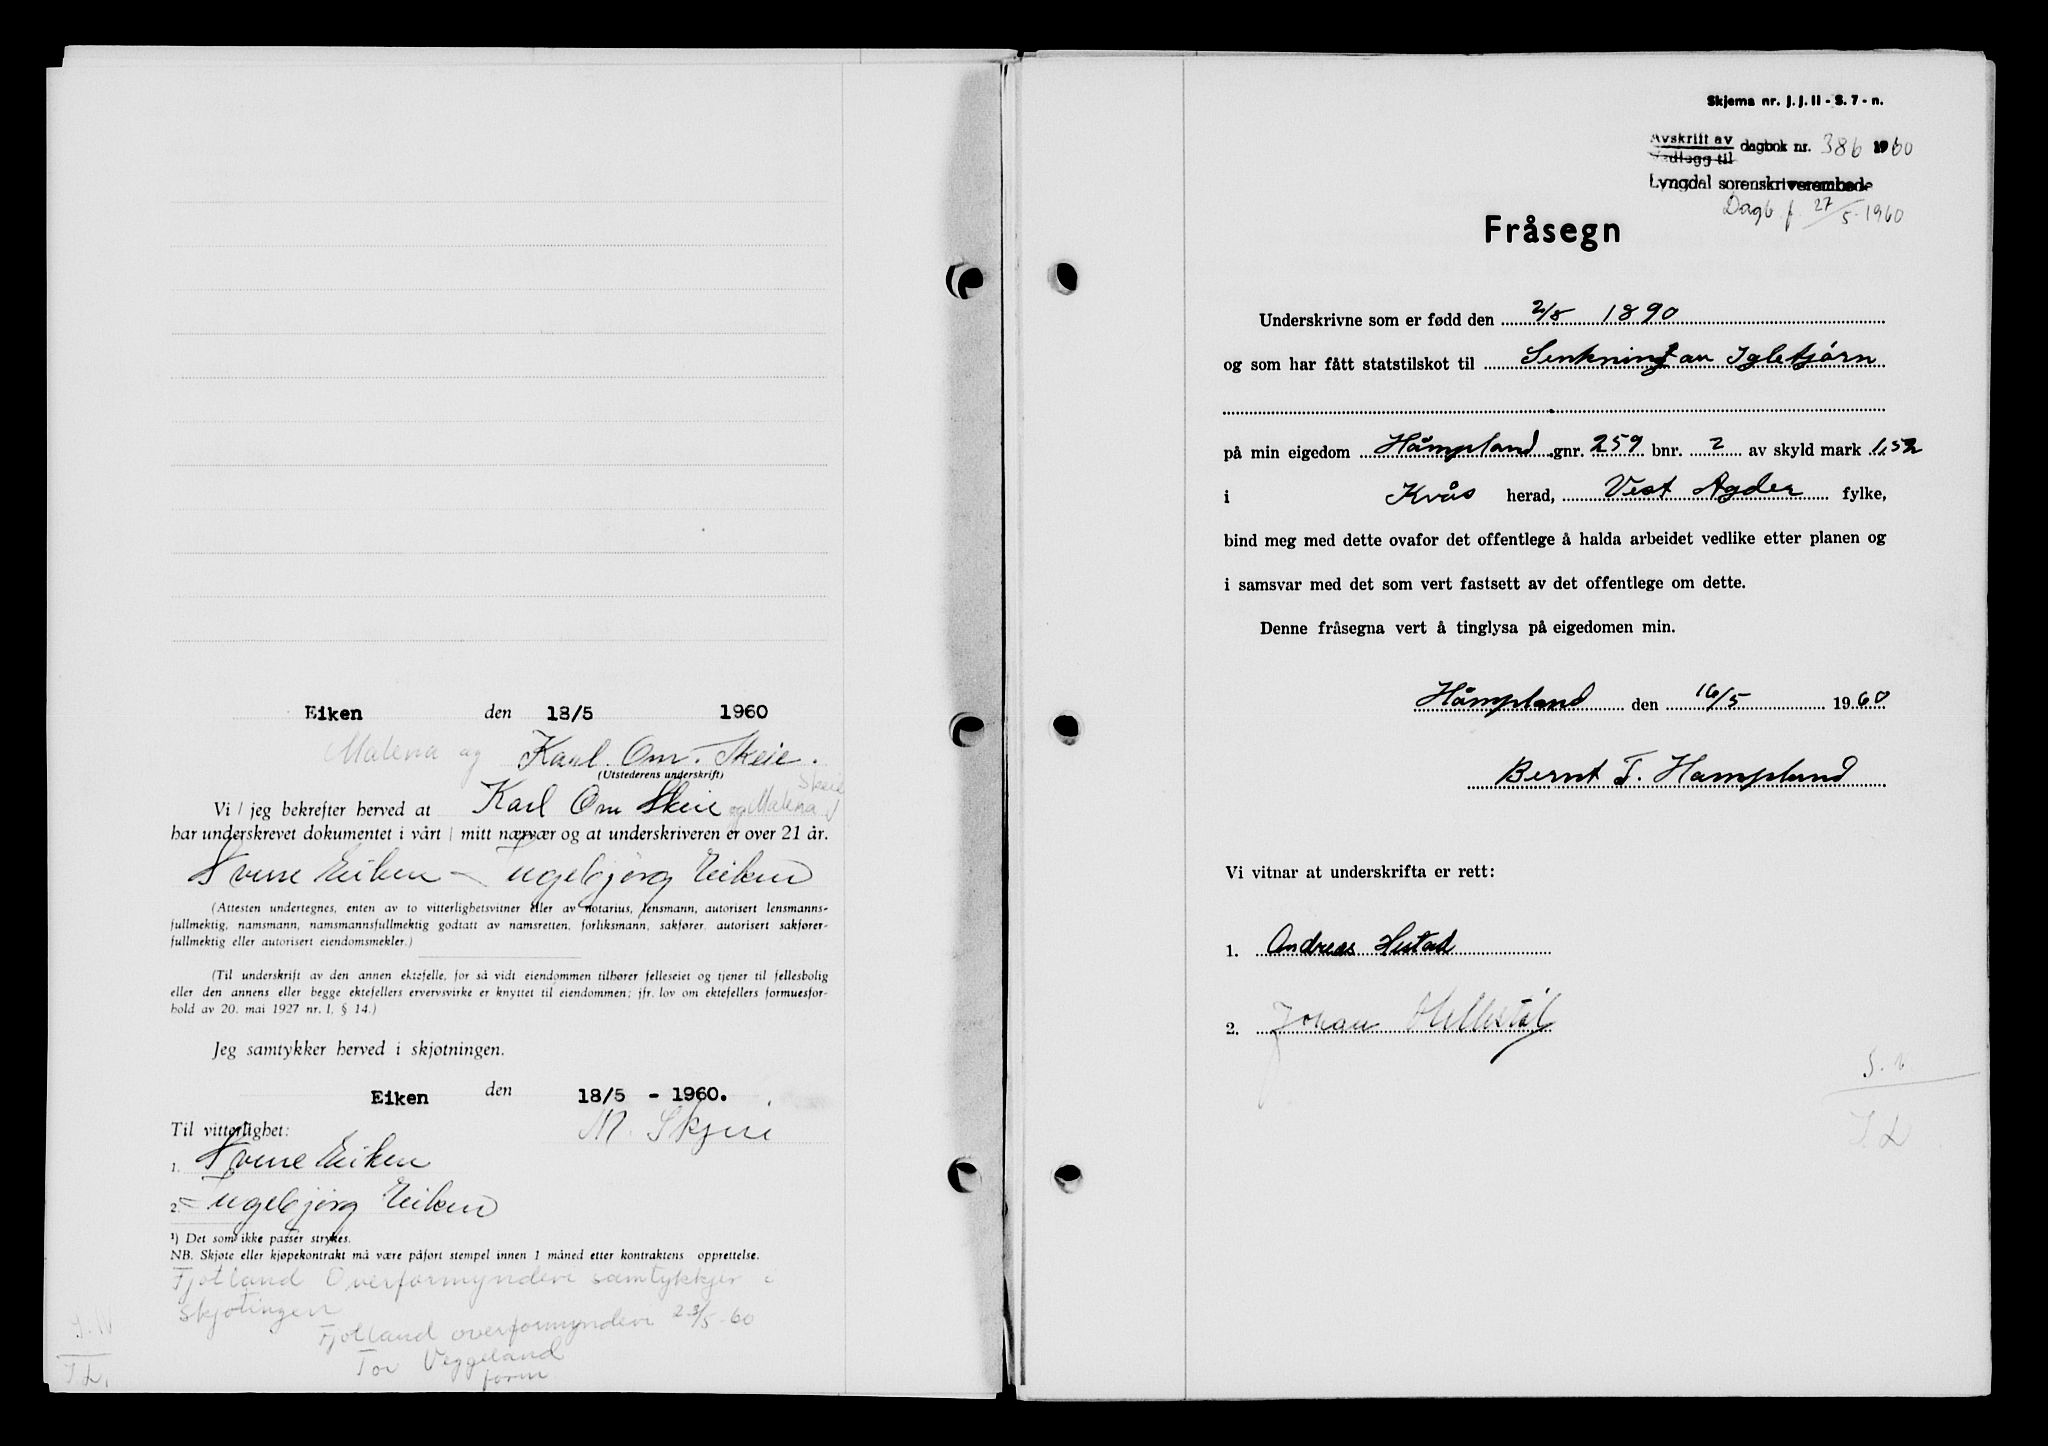 Eiken den 18/5 1960
Malena og Karl Om. Skeie.
(Utstederens underskrift)
Skeie
Vi / jeg bekrefter herved at Karl Om Skeie og Malena
har underskrevet dokumentet i vårt / mitt nærvær og at underskriveren er over 21 år.
Svene Eiken — Ingebjørg Eiken
(Attesten undertegnes, enten av to vitterlighetsvitner eller av notarius, lensmann, autorisert lensmanns-
fullmektig, namsmann, namsmannsfullmektig godtatt av namsretten, forliksmann, sakfører, autorisert sakfører-
fullmektig eller autorisert eiendomsmekler.)
(Til underskrift av den annen ektefelle, for så vidt eiendommen tilhører felleseiet og tjener til fellesbolig
eller den annens eller begge ektefellers ervervsvirke er knyttet til eiendommen; jfr. lov om ektefellers formuesfor-
hold av 20. mai 1927 nr. 1, § 14.)
Jeg samtykker herved i skjøtningen.
Eiken den 18/5 - 1960.
Til vitterlighet: M. Skjeie
1. Svene Eiken
2. Ingebjørg Eiken
¹) Det som ikke passer strykes.
NB. Skjøte eller kjøpekontrakt må være påført stempel innen 1 måned etter kontraktens opprettelse.
Fjotland Overformynderi samtykkjer i
skjøtingen
Fjotland overformynderi 23/5-60
Tor Veggeland
form
Skjema nr. J. J. II - S. 7 - n.
Avskrift av
Vedlegg til
dagbok nr. 386 1960
Lyngdal sorenskriverembede
Dagb. f. 27/5-1960
Fråsegn
Underskrivne som er fødd den 2/8 1890
og som har fått statstilskot til Senkning av Igletjørn
på min eigedom Håmpland gnr. 259 bnr. 2 av skyld mark 1,52
i Kvås herad, Vest Agder fylke,
bind meg med dette ovafor det offentlege å halda arbeidet vedlike etter planen og
i samsvar med det som vert fastsett av det offentlege om dette.
Denne fråsegna vert å tinglysa på eigedomen min.
Håmpland den 16/5 1960
Bernt T. Hampland
Vi vitnar at underskrifta er rett:
1. Andreas Hestad
2. Johan Hellestøl